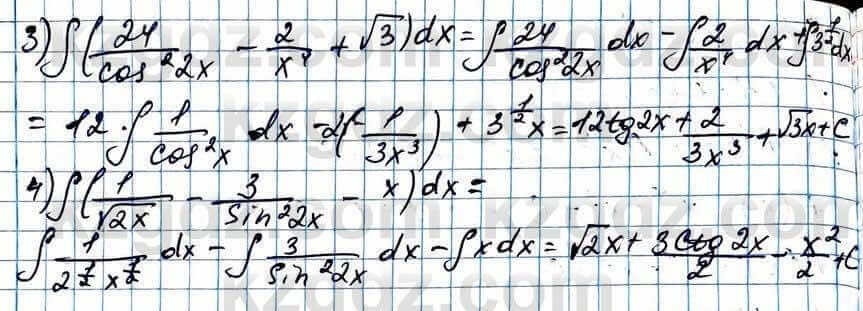 3) ∫(24/cos²2x − 2/x⁴ + √3)dx = ∫24/cos²2x dx − ∫2/x⁴ dx + ∫3^(1/2)dx
= 12·∫1/cos²x dx − 2(−1/3x³) + 3^(1/2)x = 12tg2x + 2/3x³ + √3x + C
4) ∫(1/√2x − 3/sin²2x − x)dx =
∫1/2^(1/2)x^(1/2) dx − ∫3/sin²2x dx − ∫xdx = √2x + 3ctg2x/2 − x²/2 + C